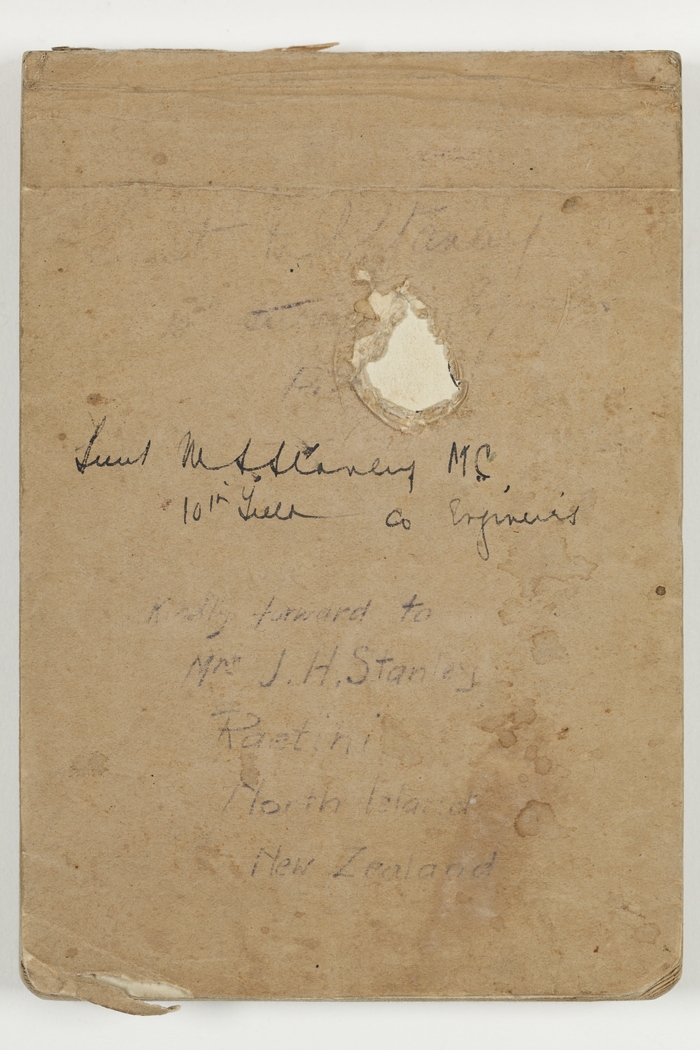 Stanley
Lieut M S Stanley MC
10th Field Co Engineers
Kindly forward to
Mrs J. H. Stanley
Raetihi
North Island
New Zealand